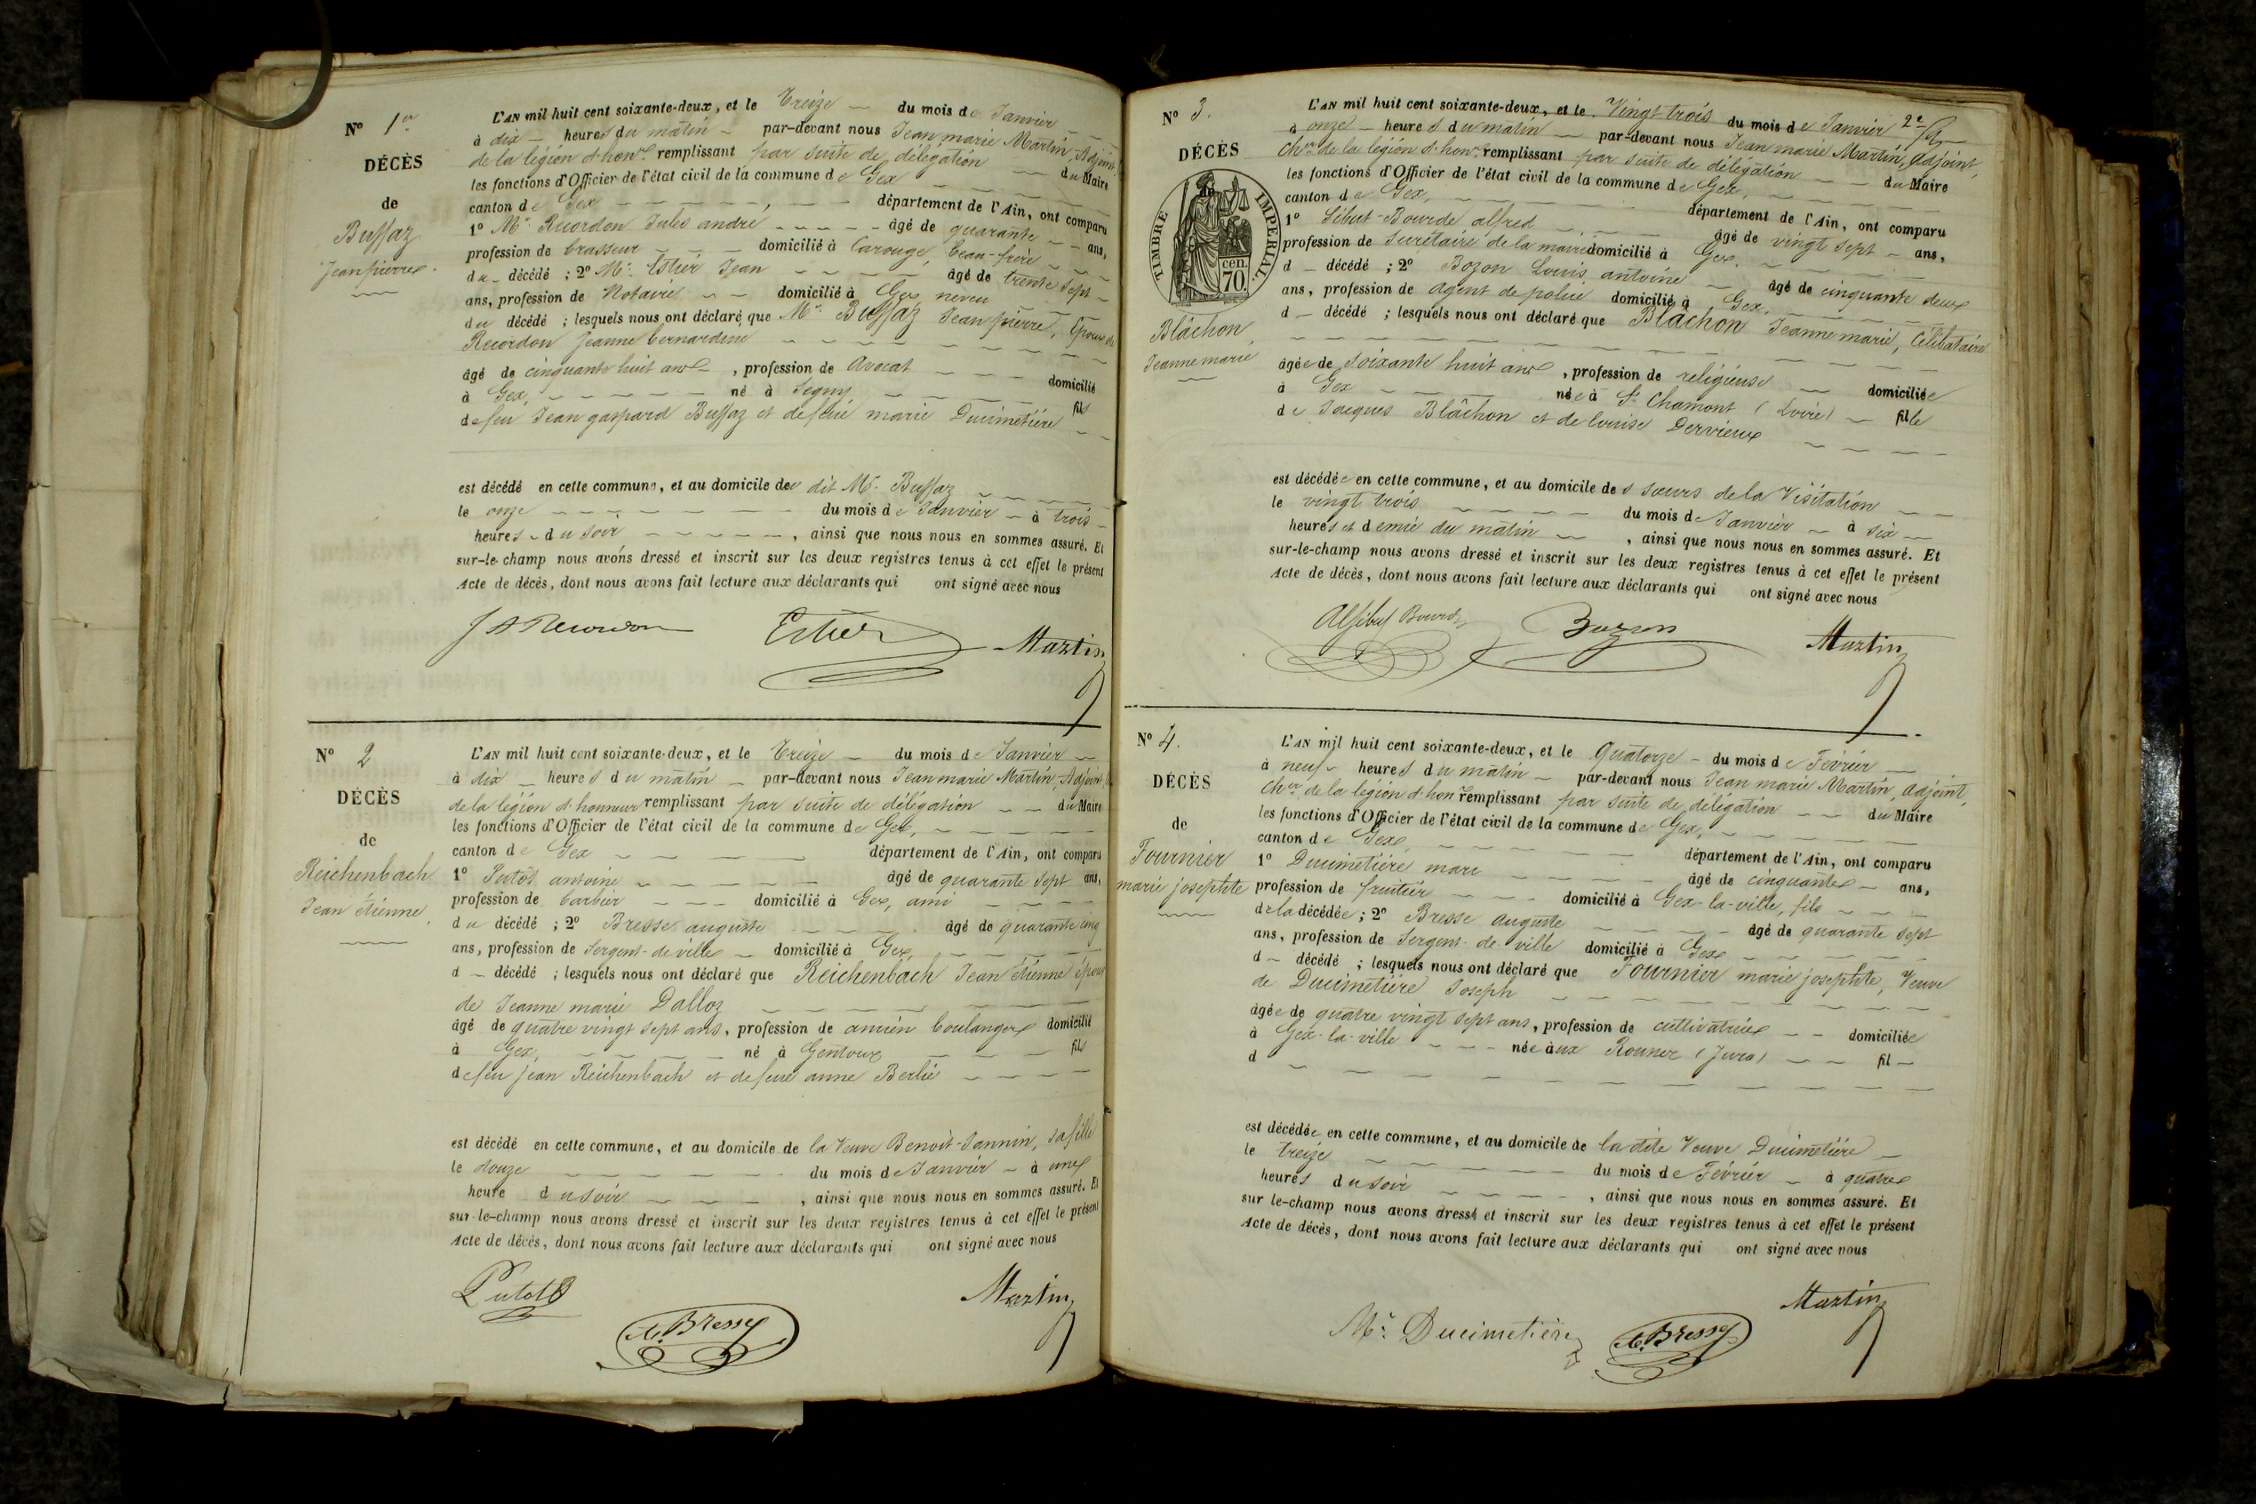 Nº 1er
DÉCÈS
de
Buffaz
Jean pierre.
L'AN mil huit cent soixante-deux, et le Treize du mois de Janvier
à dix heures du matin par-devant nous Jean marie Martin, Adjoint,
de la légion d'honr remplissant par suite de délégation du Maire
les fonctions d'Officier de l'état civil de la commune de Gex
canton de Gex département de l'Ain, ont comparu
1º Mr Recordon Jules andré âgé de quarante ans,
profession de brasseur domicilié à Carouge, beau-frère
du décédé ; 2º Mr Estier Jean âgé de trente sept
ans, profession de Notaire domicilié à Gex neveu
du décédé ; lesquels nous ont déclaré que Mr Buffaz Jean pierre, Epoux de
Recordon Jeanne bernardine
âgé de cinquante huit ans, profession de avocat domicilié
à Gex, né à Segny fils
de feu Jean gaspard Buffaz et de feue marie Ducimetière
est décédé en cette commune, et au domicile de dit Mr Buffaz
le onze du mois de Janvier à trois
heures du soir, ainsi que nous nous en sommes assuré. Et
sur-le-champ nous avons dressé et inscrit sur les deux registres tenus à cet effet le présent
Acte de décès, dont nous avons fait lecture aux déclarants qui ont signé avec nous
J A Recordon Estier Martin
Nº 2
DÉCÈS
de
Reichenbach
Jean étienne.
L'AN mil huit cent soixante-deux, et le Treize du mois de Janvier
à dix heures du matin par-devant nous Jean marie Martin, Adjoint,
de la légion d'honneur remplissant par suite de délégation du Maire
les fonctions d'Officier de l'état civil de la commune de Gex,
canton de Gex département de l'Ain, ont comparu
1º Putot antoine âgé de quarante sept ans,
profession de barbier domicilié à Gex, ami
du décédé ; 2º Bresse auguste âgé de quarante cinq
ans, profession de Sergent-de ville domicilié à Gex,
d décédé ; lesquels nous ont déclaré que Reichenbach Jean étienne époux
de Jeanne marie Dalloz
âgé de quatre vingt sept ans, profession de ancien boulanger domicilié
à Gex, né à Gentoux fils
de feu jean Reichenbach et de feue anne Berlie
est décédé en cette commune, et au domicile de la Veuve Benoit-Jannin, sa fille
le douze du mois de Janvier à une
heure du soir, ainsi que nous nous en sommes assuré. Et
sur-le-champ nous avons dressé et inscrit sur les deux registres tenus à cet effet le présent
Acte de décès, dont nous avons fait lecture aux déclarants qui ont signé avec nous
Putot Martin
A. Bresse
Nº 3.
DÉCÈS
TIMBRE IMPÉRIAL.
cen.
70.
Blâchon,
Jeanne marie
2e
L'AN mil huit cent soixante-deux, et le Vingt trois du mois de Janvier
à onze heures du matin par-devant nous Jean marie Martin, adjoint,
Chr de la légion d'honr remplissant par suite de délégation du Maire
les fonctions d'Officier de l'état civil de la commune de Gex,
canton de Gex, département de l'Ain, ont comparu
1º Sibut-Bourde alfred âgé de vingt sept ans,
profession de Secrétaire de la mairie domicilié à Gex.
d décédé ; 2º Bozon Louis antoine âgé de cinquante deux
ans, profession de agent de police domicilié à Gex,
d décédé ; lesquels nous ont déclaré que Blâchon Jeanne marie, Célibataire
âgée de soixante huit ans, profession de religieuse domiciliée
à Gex née à St Chamont (Loire) fille
de Jacques Blâchon et de louise Dervieux
est décédée en cette commune, et au domicile des sœurs de la Visitation
le vingt trois du mois de Janvier à six
heures et demie du matin, ainsi que nous nous en sommes assuré. Et
sur-le-champ nous avons dressé et inscrit sur les deux registres tenus à cet effet le présent
Acte de décès, dont nous avons fait lecture aux déclarants qui ont signé avec nous
Al Sibut Bourde Bozon Martin
Nº 4.
DÉCÈS
de
Fournier
marie josephte
L'AN mil huit cent soixante-deux, et le Quatorze du mois de Février
à neuf heures du matin par-devant nous Jean marie Martin, adjoint,
Cher de la légion d'honr remplissant par suite de délégation du Maire
les fonctions d'Officier de l'état civil de la commune de Gex,
canton de Gex, département de l'Ain, ont comparu
1º Ducimetière marc âgé de cinquante ans,
profession de fruitier domicilié à Gex-la-ville, fils
de la décédée ; 2º Bresse auguste âgé de quarante sept
ans, profession de Sergent-de ville domicilié à Gex
d décédé ; lesquels nous ont déclaré que Fournier marie josephte, Veuve
de Ducimetière Joseph
âgée de quatre vingt sept ans, profession de cultivatrice domiciliée
à Gex-la-ville née aux Rousses (Jura) fil
d
est décédée en cette commune, et au domicile de la dite Veuve Ducimetière
le treize du mois de Février à quatre
heures du soir, ainsi que nous nous en sommes assuré. Et
sur le-champ nous avons dressé et inscrit sur les deux registres tenus à cet effet le présent
Acte de décès, dont nous avons fait lecture aux déclarants qui ont signé avec nous
Mc Ducimetière A. Bresse Martin